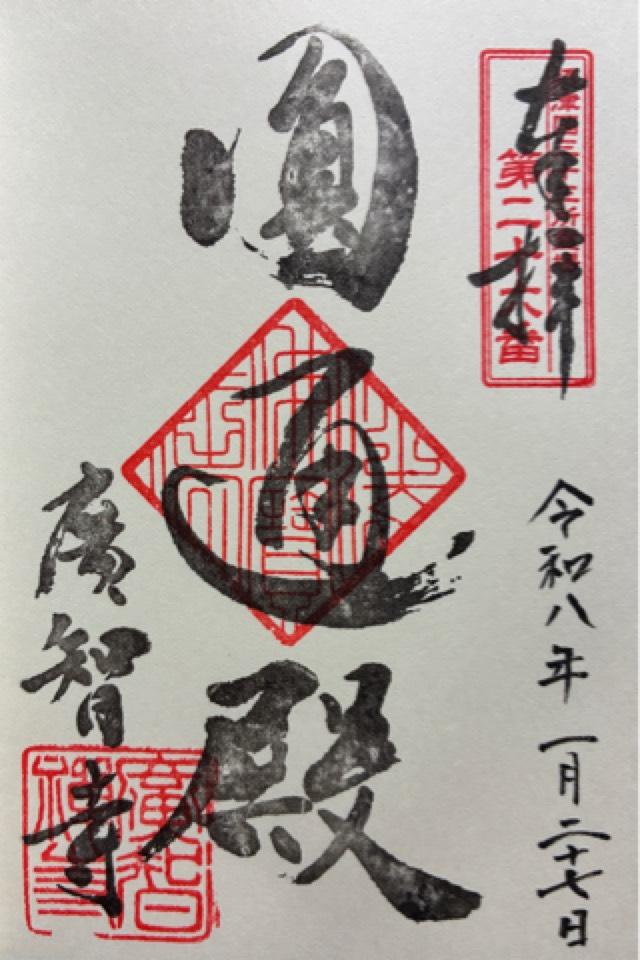 奉拝
第二十六番
令和八年 一月二十七日
圓通殿
廣智寺
廣智禅寺